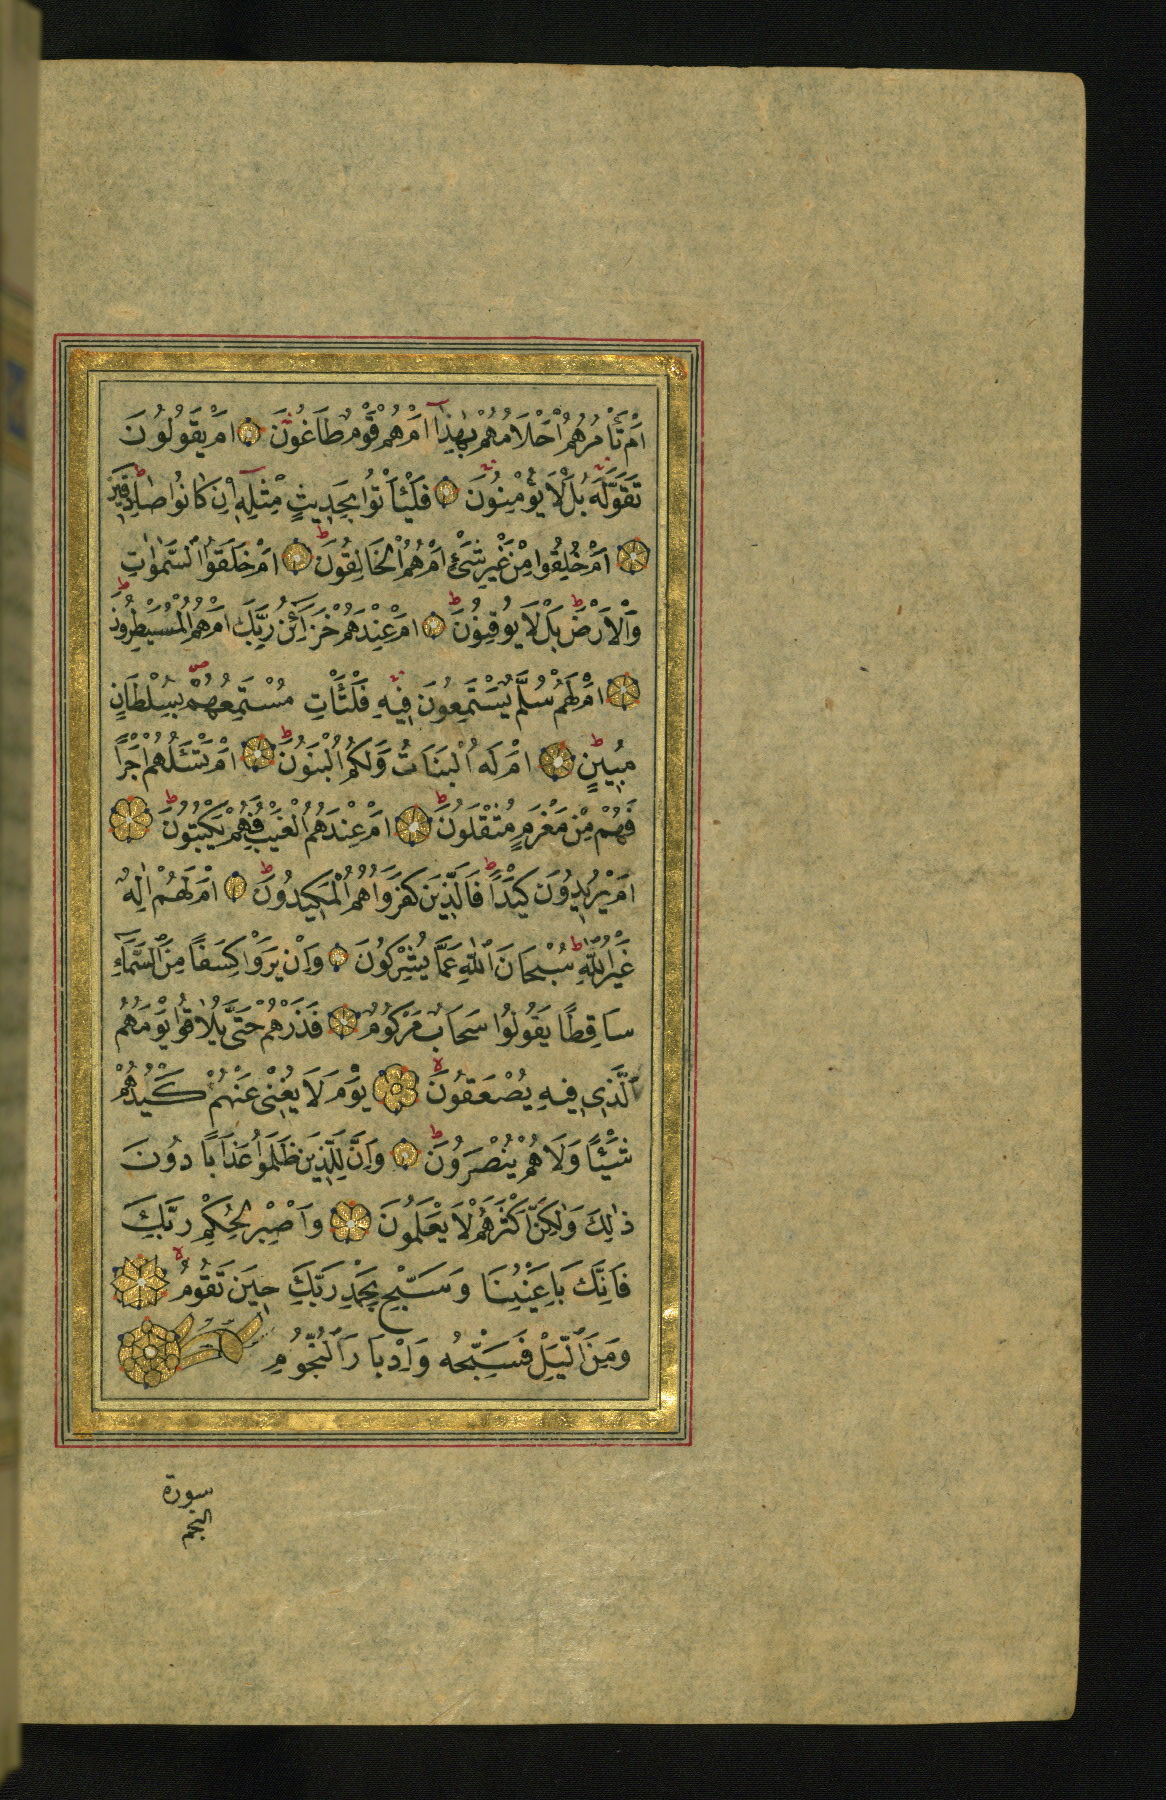 اَمْ تَأْمُرُهُمْ اَحْلَامُهُمْ بِهٰذَٓا اَمْ هُمْ قَوْمٌ طَاغُونَ اَمْ يَقُولُونَ
تَقَوَّلَهُ بَلْ لَا يُؤْمِنُونَ فَلْيَأْتُوا بِحَدِيثٍ مِثْلِهِٓ اِنْ كَانُوا صَادِقِينَ
اَمْ خُلِقُوا مِنْ غَيْرِ شَيْءٍ اَمْ هُمُ الْخَالِقُونَ ط اَمْ خَلَقُوا السَّمٰوَاتِ
وَالْاَرْضَ ط بَلْ لَا يُوقِنُونَ ط اَمْ عِنْدَهُمْ خَزَٓائِنُ رَبِّكَ اَمْ هُمُ الْمُسَيْطِرُونَ ط
اَمْ لَهُمْ سُلَّمٌ يَسْتَمِعُونَ فِيهِ فَلْيَأْتِ مُسْتَمِعُهُمْ بِسُلْطَانٍ
مُبِينٍ ط اَمْ لَهُ الْبَنَاتُ وَلَكُمُ الْبَنُونَ ط اَمْ تَسْئَلُهُمْ اَجْرًا
فَهُمْ مِنْ مَغْرَمٍ مُثْقَلُونَ ط اَمْ عِنْدَهُمُ الْغَيْبُ فَهُمْ يَكْتُبُونَ ط
اَمْ يُرِيدُونَ كَيْدًا ط فَالَّذِينَ كَفَرُوا هُمُ الْمَكِيدُونَ ط اَمْ لَهُمْ اِلٰهٌ
غَيْرُ اللّٰهِ ط سُبْحَانَ اللّٰهِ عَمَّا يُشْرِكُونَ وَاِنْ يَرَوْا كِسَفًا مِنَ السَّمَٓاءِ
سَاقِطًا يَقُولُوا سَحَابٌ مَرْكُومٌ فَذَرْهُمْ حَتّٰى يُلَاقُوا يَوْمَهُمُ
الَّذِي فِيهِ يُصْعَقُونَ لا يَوْمَ لَا يُغْنِي عَنْهُمْ كَيْدُهُمْ
شَيْئًا وَلَا هُمْ يُنْصَرُونَ ط وَاِنَّ لِلَّذِينَ ظَلَمُوا عَذَابًا دُونَ
ذٰلِكَ وَلٰكِنَّ اَكْثَرَهُمْ لَا يَعْلَمُونَ وَاصْبِرْ لِحُكْمِ رَبِّكَ
فَاِنَّكَ بِاَعْيُنِنَا وَسَبِّحْ بِحَمْدِ رَبِّكَ حِينَ تَقُومُ لا
وَمِنَ الَّيْلِ فَسَبِّحْهُ وَاِدْبَارَ النُّجُومِ
سورة
النجم